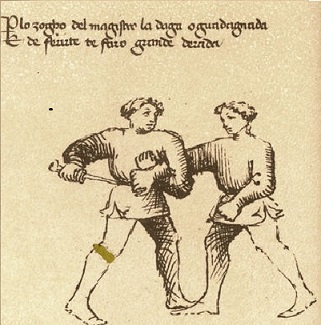 P lo zogho del magistro la daga o guadagnada
E de ferirte te farò grande derada